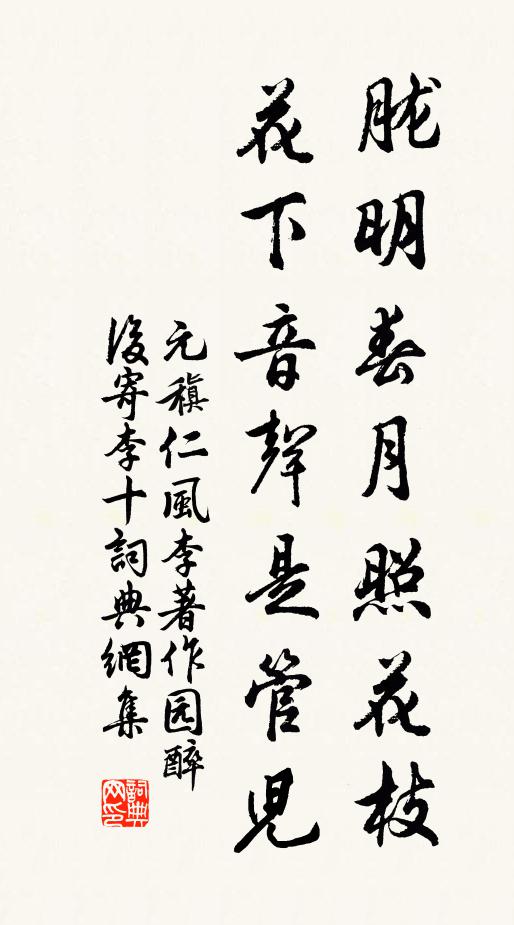 胧明春月照花枝
花下音聲是管兒
元稹仁風李著作园醉
後寄李十詞典網集
詞典
网印